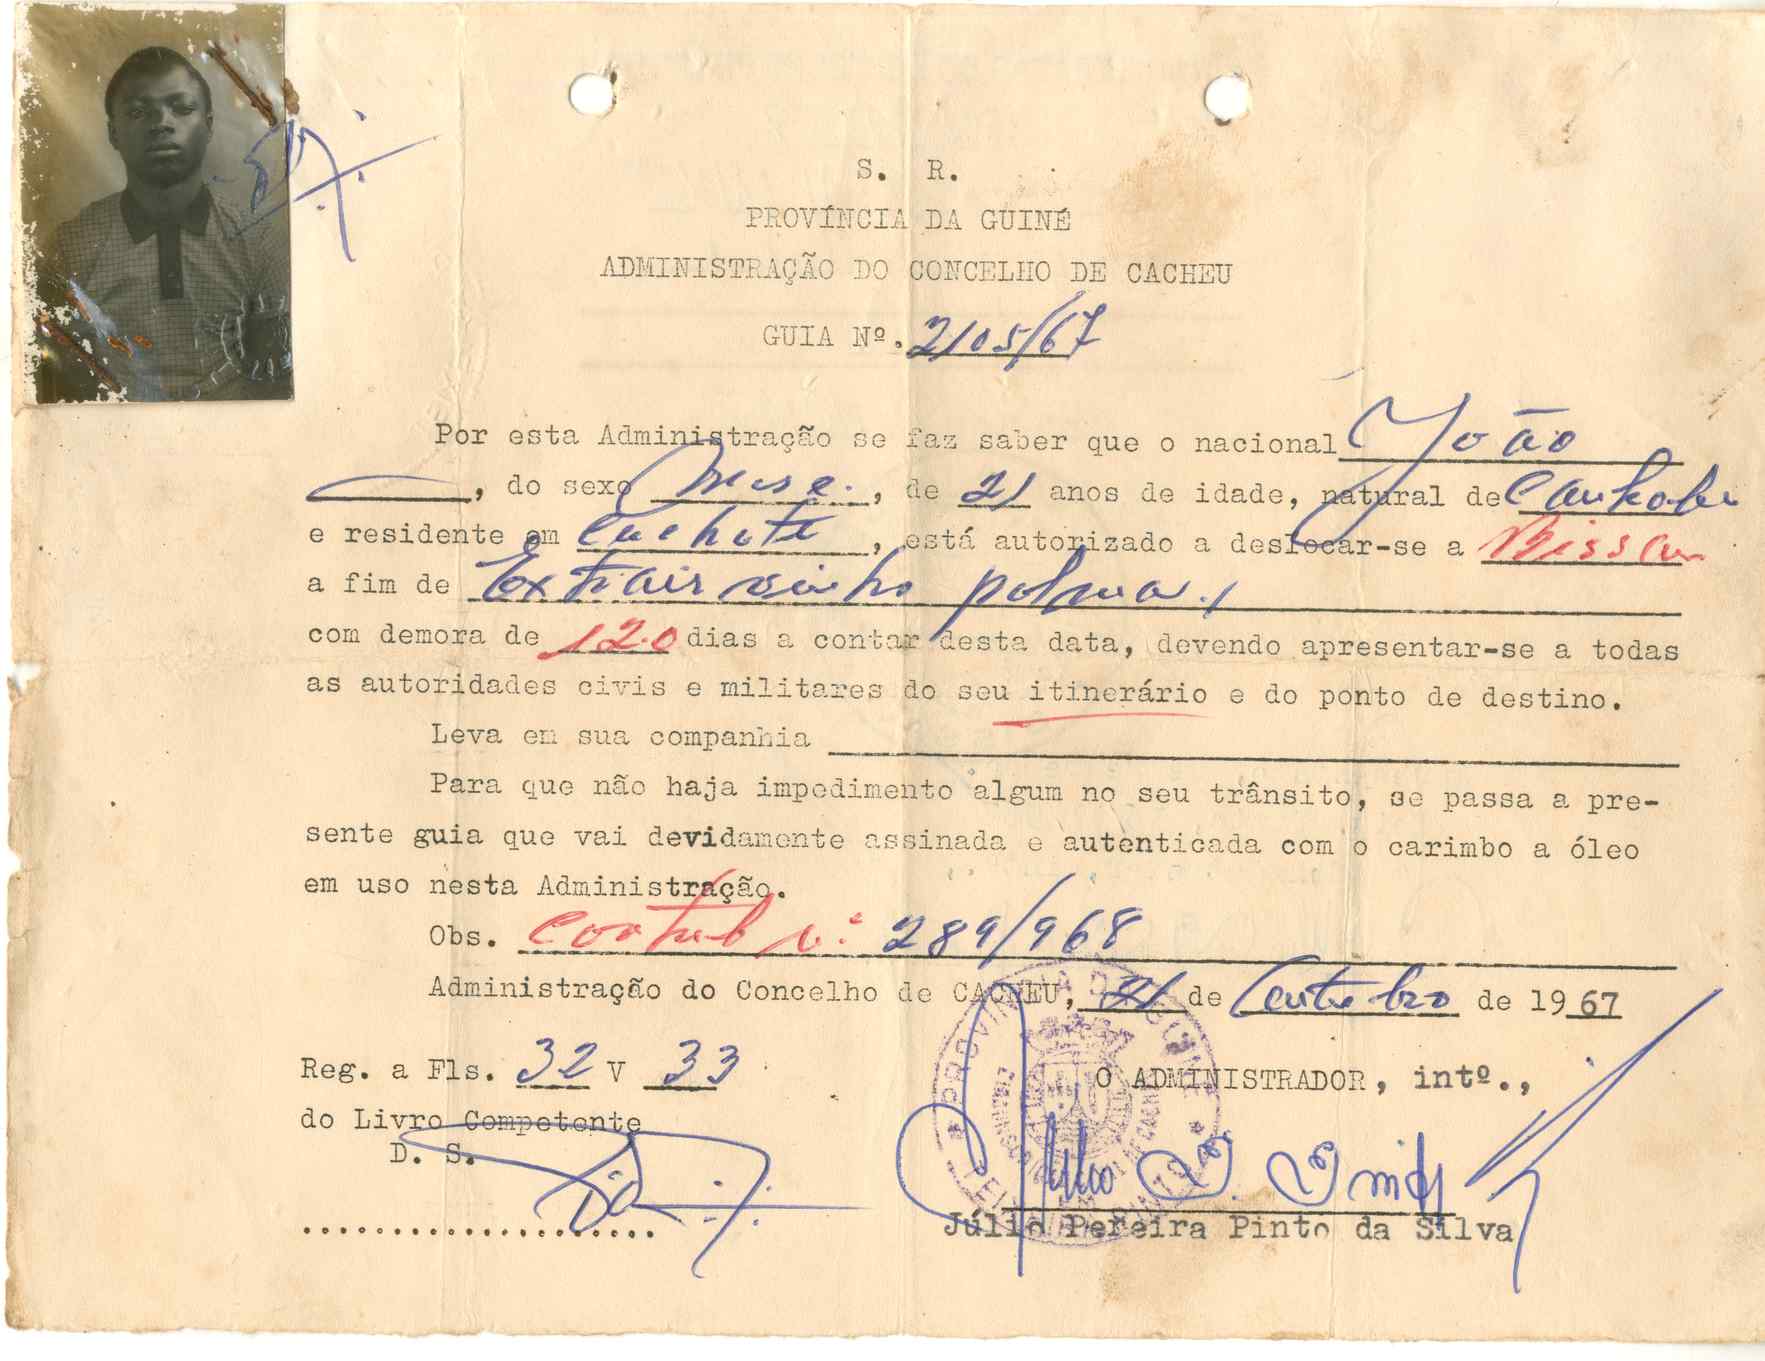 S. R.
PROVÍNCIA DA GUINÉ
ADMINISTRAÇÃO DO CONCELHO DE CACHEU
GUIA Nº. 2105/67
Por esta Administração se faz saber que o nacional João
, do sexo masc., de 21 anos de idade, natural de
e residente em, está autorizado a deslocar-se a Bissau
a fim de Extrair vinho palma.
com demora de 120 dias a contar desta data, devendo apresentar-se a todas
as autoridades civis e militares do seu itinerário e do ponto de destino.
Leva em sua companhia
Para que não haja impedimento algum no seu trânsito, se passa a pre-
sente guia que vai devidamente assinada e autenticada com o carimbo a óleo
em uso nesta Administração.
Obs. Contrib nº 289/968
Administração do Concelho de CACHEU, de Outubro de 1967
Reg. a Fls. 32 V 33
O ADMINISTRADOR, intº.,
do Livro Competente
D. S.
Júlio Pereira Pinto da Silva